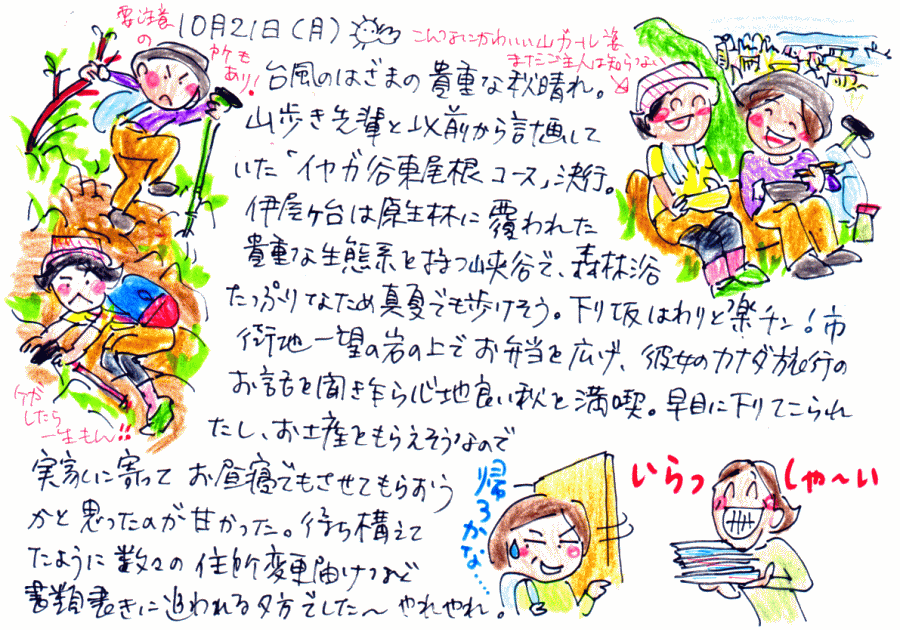 10月21日(月)
要注意
の
ヶ所も
あり!
こんなにかわいい山ガール姿
まだご主人は知らない
台風のはざまの貴重な秋晴れ。
山歩き先輩と以前から計画して
いた「イヤガ谷東尾根コース」決行。
伊屋ヶ台は原生林に覆われた
貴重な生態系を持つ山峡谷で、森林浴
たっぷりなため真夏でも歩けそう。下り坂はわりと楽チン!市
街地一望の岩の上でお弁当を広げ、彼女のカナダ旅行の
お話を聞き乍ら心地良い秋を満喫。早目に下りてこられ
たし、お土産ももらえそうなので
実家に寄ってお昼寝でもさせてもらおう
かと思ったのが甘かった。待ち構えて
たように数々の住所変更届けなど
書類書きに追われる夕方でした〜やれやれ。
ケガ
したら
一生もん!!
帰ろかな…
いらっしゃ〜い